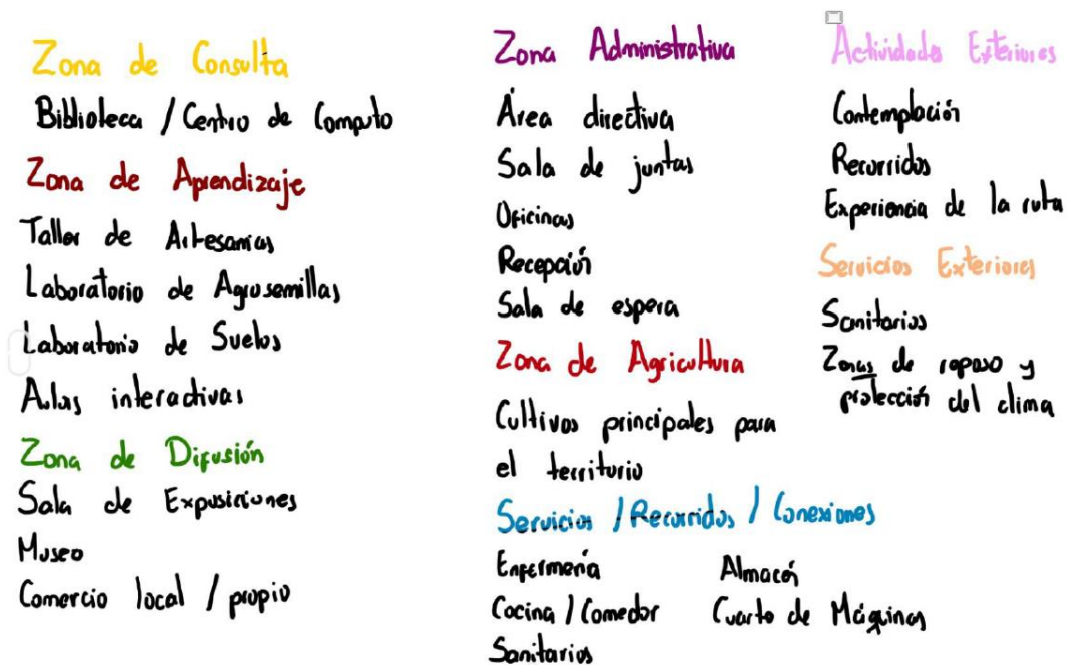 Zona de Consulta
Biblioteca / Centro de Computo
Zona de Aprendizaje
Taller de Artesanias
Laboratorio de Agrosemillas
Laboratorio de Suelos
Aulas interactivas
Zona de Difusión
Sala de Exposiciones
Museo
Comercio local / propio
Zona Administrativa
Área directiva
Sala de juntas
Oficinas
Recepción
Sala de espera
Zona de Agricultura
Cultivos principales para
el territorio
Servicios / Recorridos / Conexiones
Enfermería
Cocina / Comedor
Sanitarios
Almacén
Cuarto de Máquinas
Actividades Exteriores
Contemplación
Recorridos
Experiencia de la ruta
Servicios Exteriores
Sanitarios
Zonas de reposo y
protección del clima